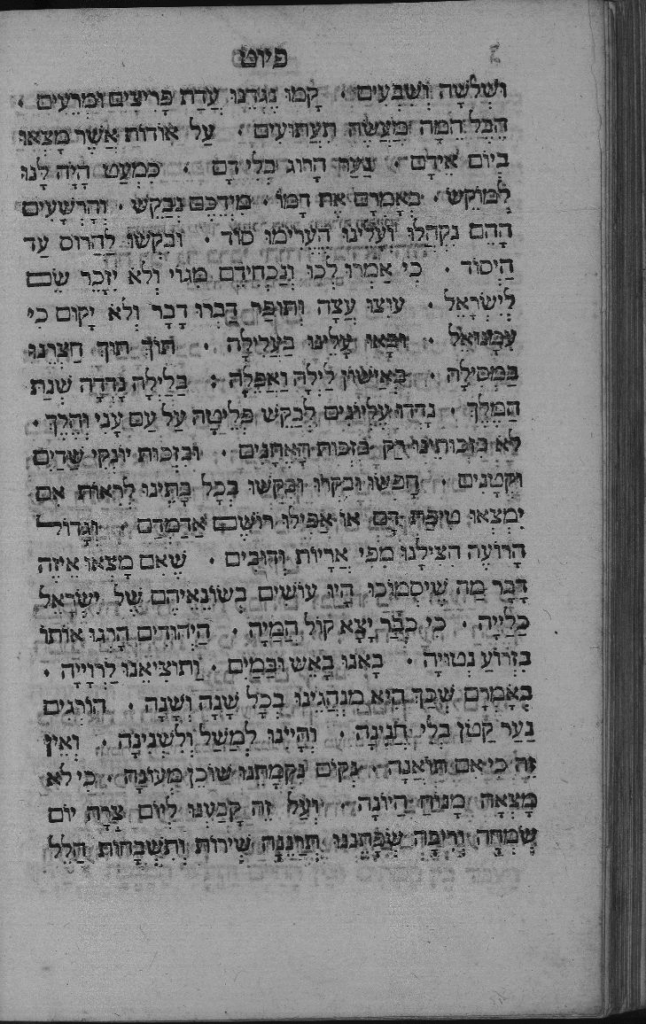 פיוט
ושלשה ושבעים · קמו נגדנו עדת פריצים ומרעים ·
הבל המה מעשה תעתועים · על אודות אשר מצאו
ביום אידם · נער הרוג בלי דם · כמעט היה לנו
למוקש · באמרם את דמו · מידכם נבקש · והרשעים
ההם נקהלו ועלינו הערימו סוד · ובקשו להרוס עד
היסוד · כי אמרו לכו ונכחידם מגוי ולא יזכר שם
לישראל · עוצו עצה ותופר דברו דבר ולא יקום כי
עמנואל · ובאו עלינו בעלילה · תוך תוך חצרנו
במסילה · באישון לילה ואפלה : בלילה נדדה שנת
המלך · נדדו עליונים לבקש פליטה על עם עני והלך ·
לא בזכותינו רק בזכות האתנים · ובזכות יונקי שדים
וקטנים · חפשו ובקרו ובקשו בכל בתינו לראות אם
ימצאו טיפת דם או אפילו רושם אדמדם · וגדול
הרועה הצילנו מפי אריות ודובים · שאם מצאו איזה
דבר מה שיסמוכו היו עושים בשונאיהם של ישראל
כלייה · כי כבר יצא קול המיה · היהודים הרגו אותו
בזרוע נטויה · באנו באש ובמים · ותוציאנו לרוייה ·
באמרם שכך היא מנהגינו בכל שנה ושנה · הורגים
נער קטן בלי חנינה · והיינו למשל ולשנינה · ואין
זה כי אם תואנה · נקום נקמתנו שוכן מעונה · כי לא
מצאה מנוח היונה · ועל זה קבענו ליום צרה יום
שמחה וריבה שפתננו תרננה שירות ותשבחות הלל